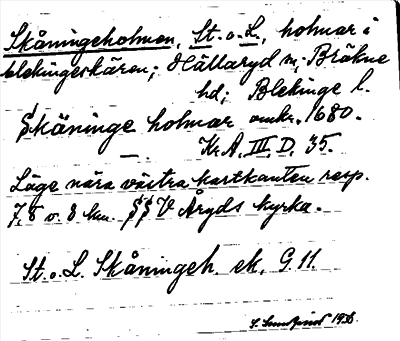 Skåningeholmen, St. o. L., holmar i
blekingeskären; Hällaryd sn; Bräkne
hd; Blekinge l.
Skäninge holmar omkr. 1680.
— . Kr.A. III. D. 35.
Läge nära västra kartkanten resp.
7,5 o. 8 km. SSV Åryds kyrka.
St. o. L. Skåningeh. ek. G. 11.
1938.